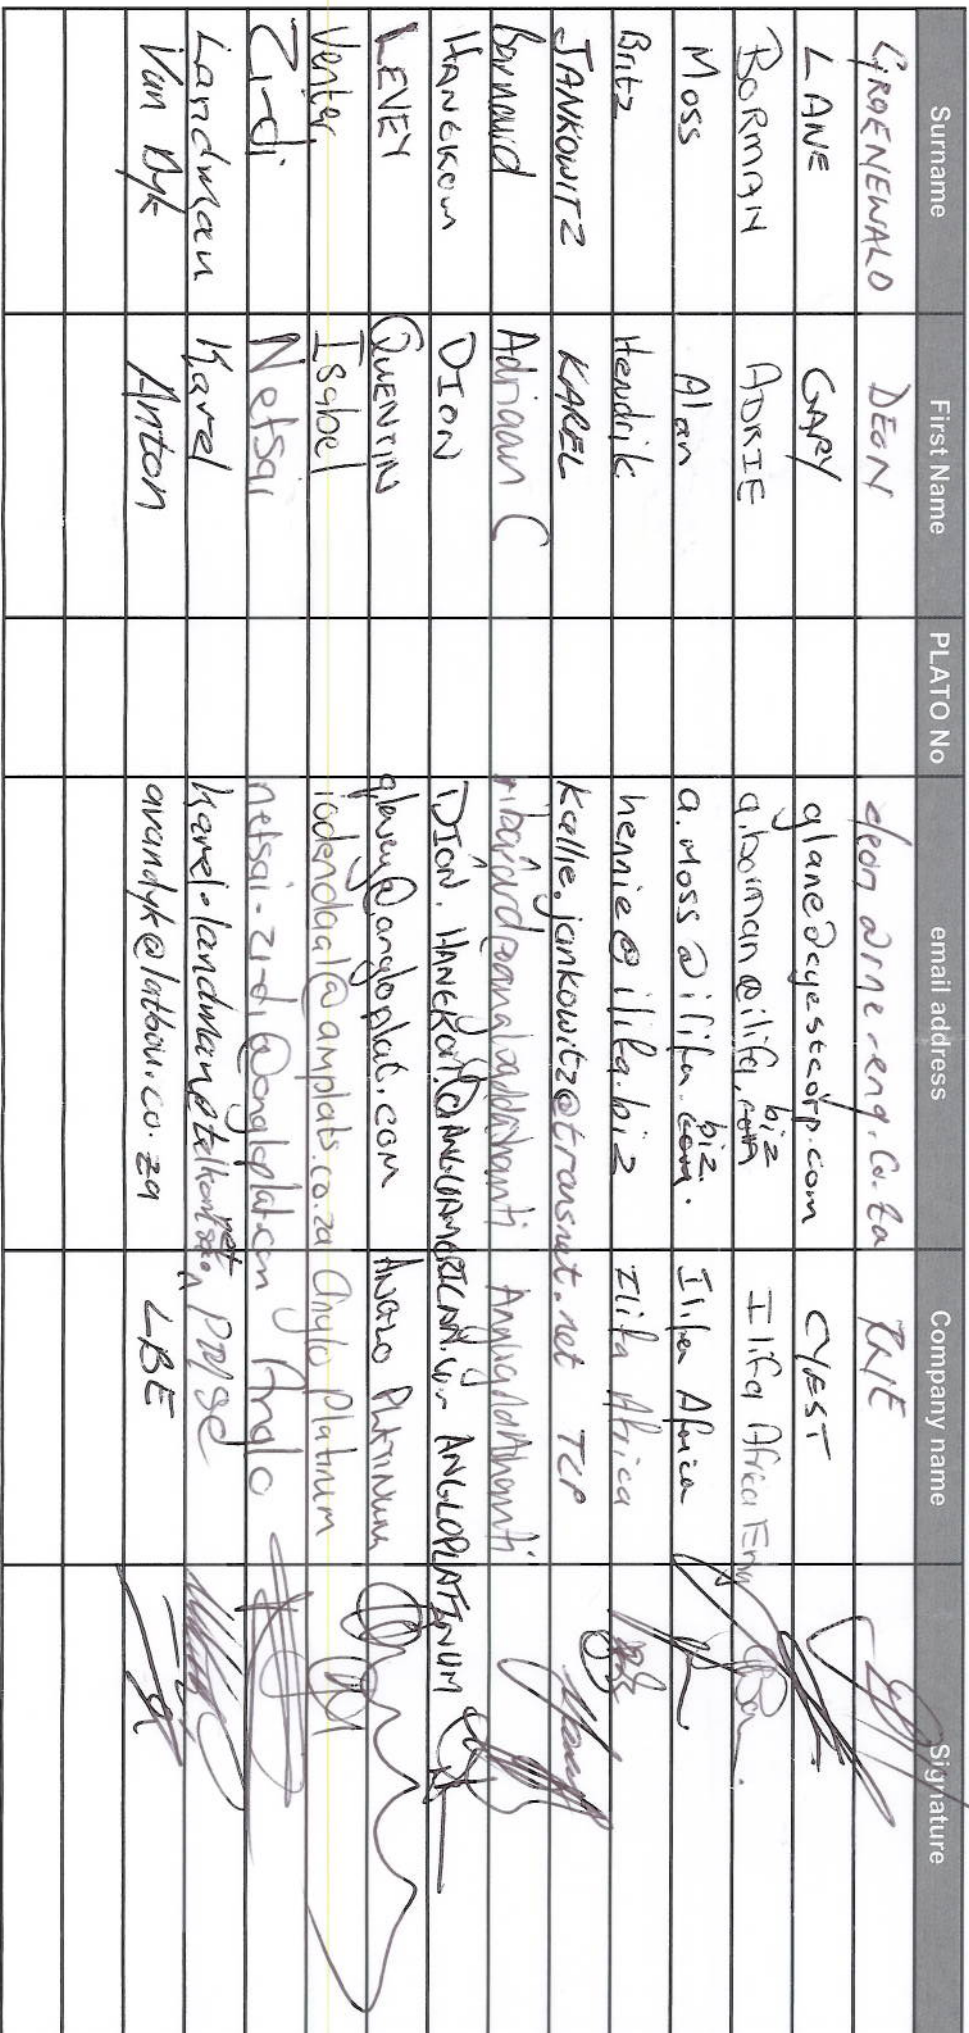 Surname First Name PLATO No email address Company name Signature
GROENEWALD DEON
LANE GARY glane@cyestcorp.com CYEST
BORMAN ADRIE a.borman@ilifa.biz Ilifa Africa Eng
Moss Alan a.moss@ilifa.biz Ilifa Africa
Britz Hendrik hennie@ilifa.biz Ilifa Africa
JANKOWITZ KAREL kallie.jankowitz@transnet.net TCP
Barnard Adriaan C Anglogoldashanti
HANEKOM DION DION.HANEKOM@ANGLOAMERICAN.com ANGLOPLATINUM
LEVEY QUENTIN qlevey@angloplat.com ANGLO PLATINUM
Venter Isabel iodendaal@amplats.co.za Anglo Platinum
Zindi Netsai netsai.zindi@angloplat.com Anglo
Landman Karel
Van Dyk Anton avandyk@latbou.co.za LBE